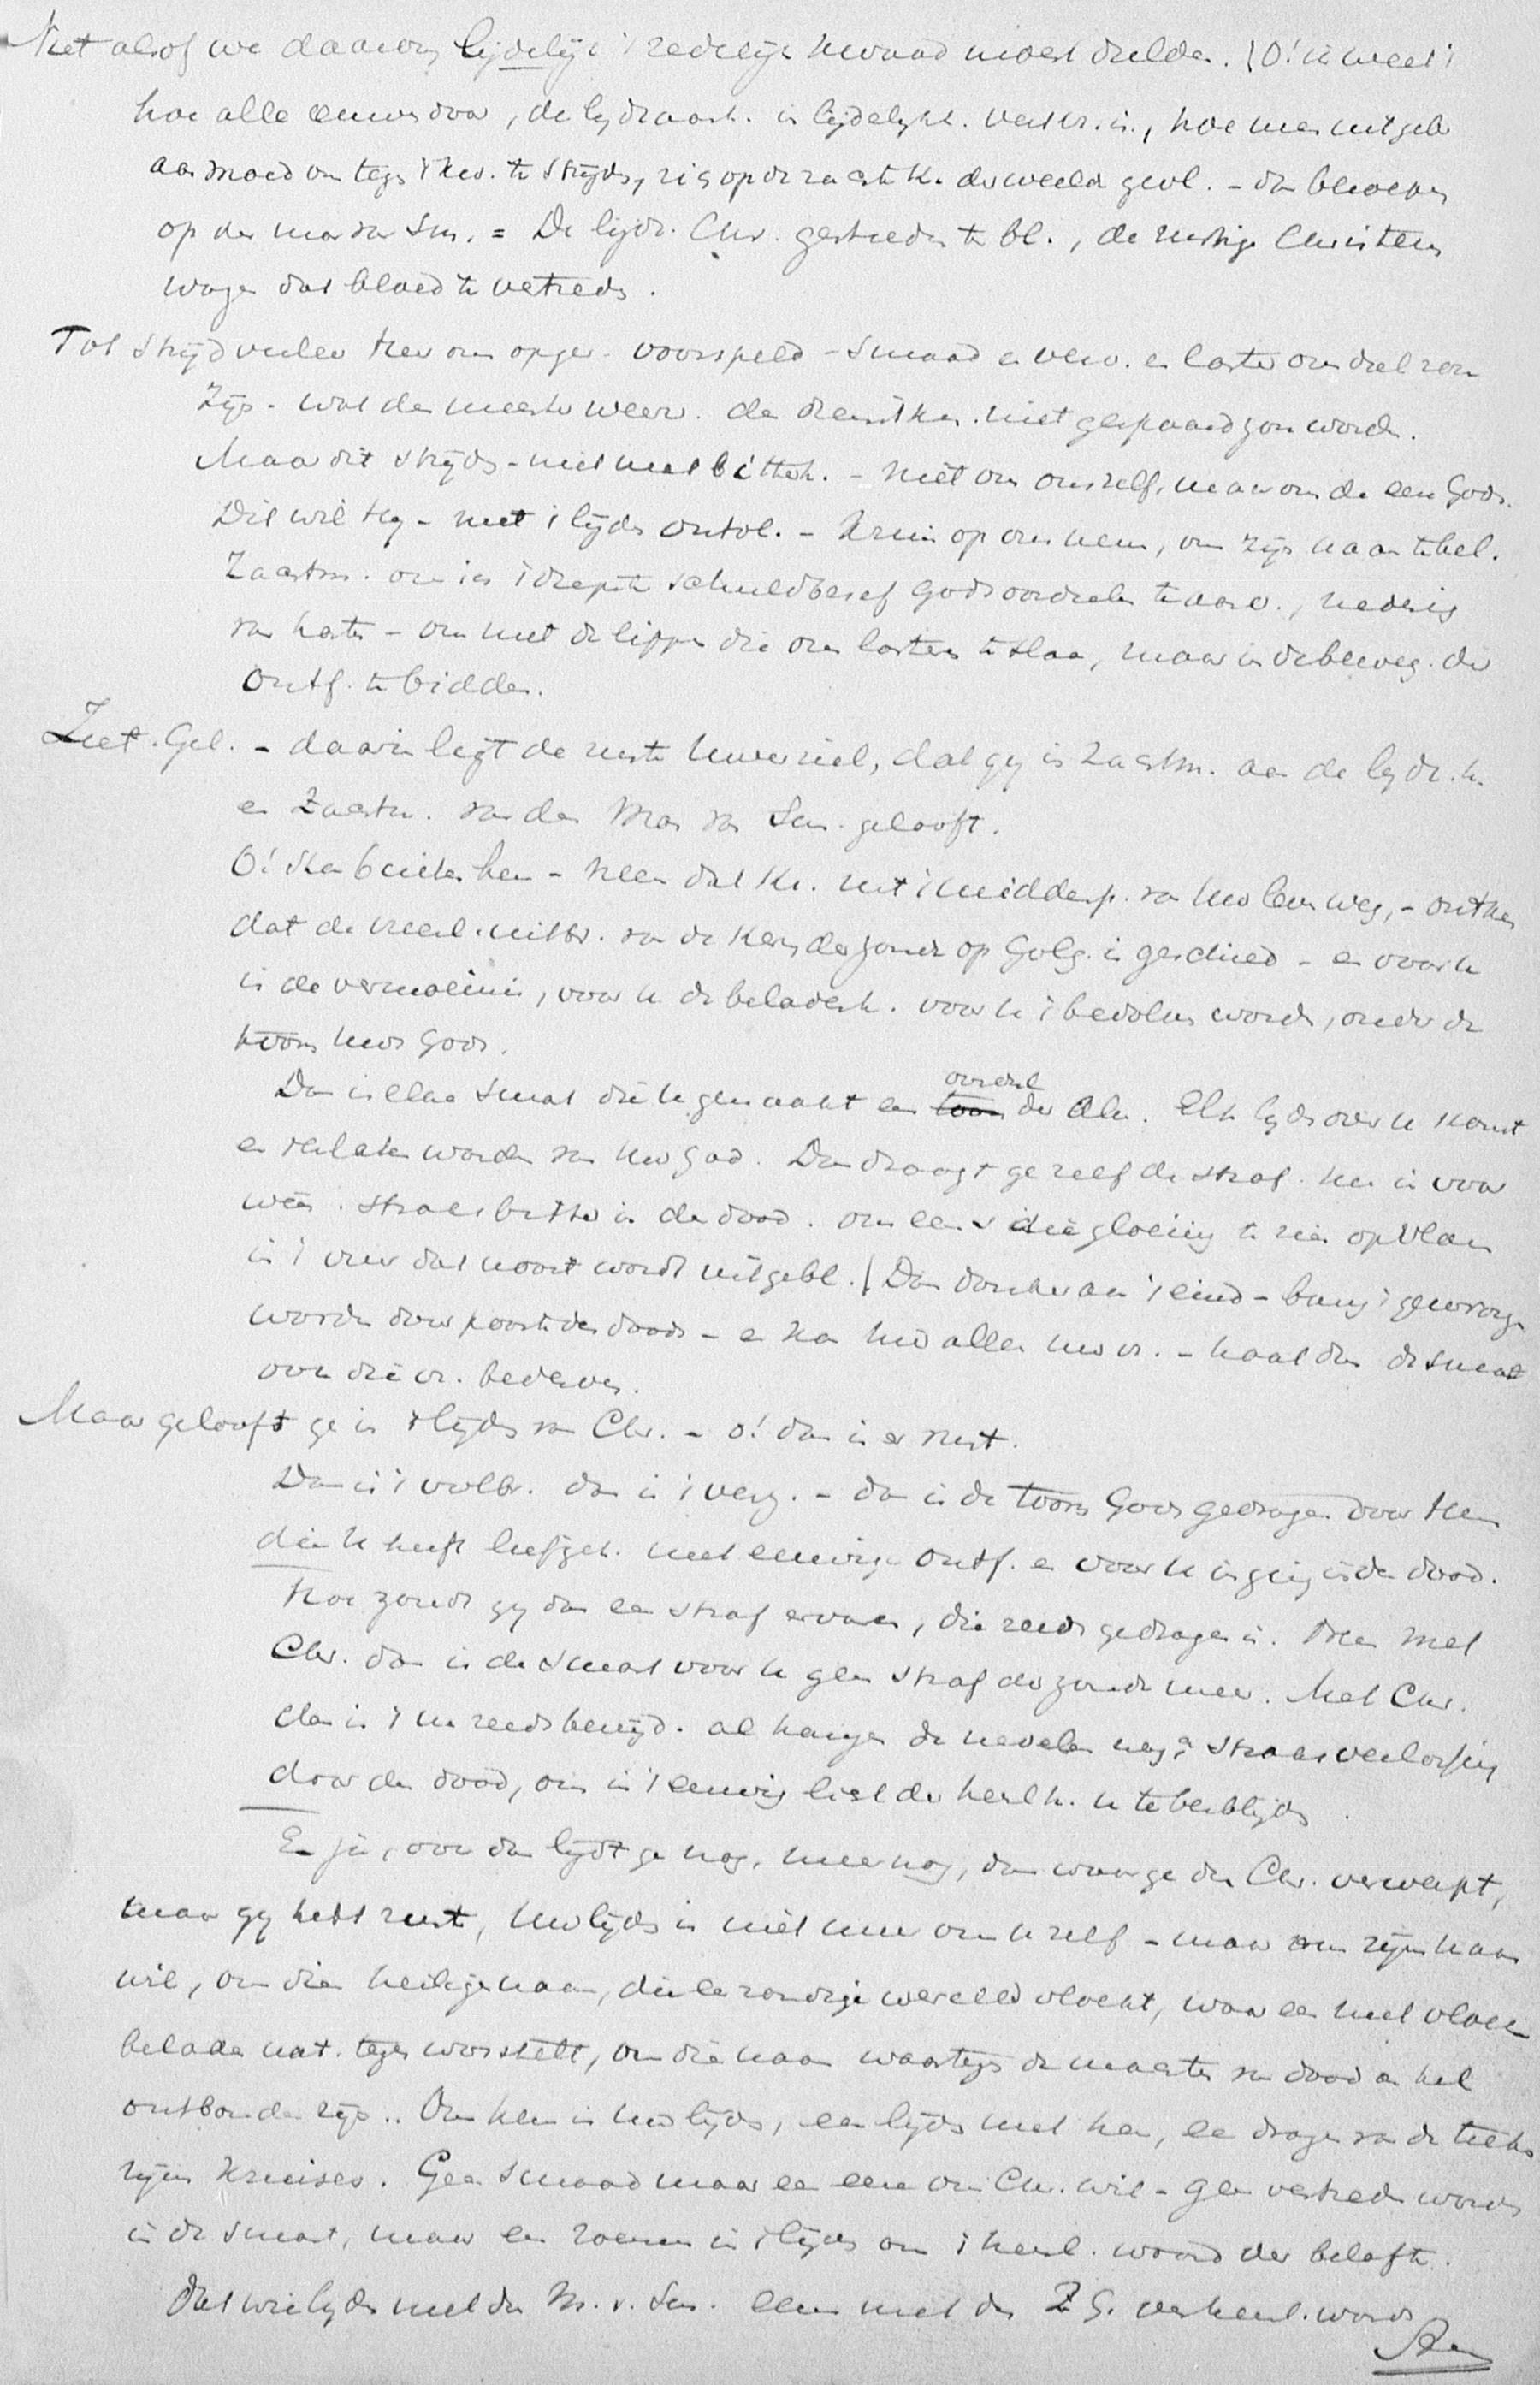 Niet alsof we daarom lijdelijk 't zedelijk kwaad moest dulden. (O! ik weet 't
hoe alle eeuwen door, de lijdzaamh. is lijdelykh.
aan moed om tegen 't kw. te strijden, zich op de zachte k. der weelde
op den man van Sm. = De lijdz. Chr. gestreden te bl., de rustige Christen
wagen dat bloed te vertreden.
Tot strijd veeleer Hen ons opger. voorspeld - smaad en verv. en laster ons deel zou
zijn - wat den meester weerv. de dienstkn. niet gespaard zou worden.
Maar dit strijden - niet met bitterh. - niet om onszelf, maar om de eere Gods.
Dit wil Hij - niet 't lijden ontvl. - kruis op ons nemen, om zijn naam te bel.
Zachtm. om in 't diepste schuldbesef Gods oordeelen te aanv., nederig
van harte - om met de lippen die ons lasteren te slaan, maar in de beweg. der
ontf. te bidden.
Ziet. Gel. - daarin ligt de rust Uwer ziel, dat gij in zachtm. aan de lijdz.h.
en zachtm. van den Man van Sm. gelooft.
O! sta buiten hem - neem dat Kr. uit 't middenp. van Uw levensweg, - ontken
dat de heerl. uitbr. van de kern der zonde op Golg. is geschied - en voor u
is de vermoeienis, voor u de beladenh. voor u 't bedolven worden, onder de
toorn Uws Gods.
Dan is elke smart die u genaakt een oordeel der Alm. Elk lijden over u komt
en verlaten worden van Uw God. Dan draagt ge zelf de straf. hier in voor
wee. straks bitter in den dood. om eens die gloeiing te zien opvlam
in 't vuur dat nooit wordt uitgebl. (Dan donker aan 't eind - bang 't gewrongen
worden door poorten des doods - en kan Uw alles Uw vr. - haal dan de smart
ook die vr. bederven.
Maar gelooft ge in 't lijden van Chr. - o! dan is er rust.
Dan is 't volbr. dan is 't verz. - dan is de toorn Gods gedragen door Hem
die u heeft liefgeh. met eeuwige ontf. en voor u inging in den dood.
Hoe zoudt gij dan een straf ervaren, die reeds gedragen is. Neen met
Chr. dan is de smart voor u geen straf der zonde meer. Met Chr.
dan is 't nu reeds bevrijd. al hangen de nevelen nog? straks verlossing
door den dood, om in 't eeuwig licht der heerlh. u te verblijden.
En ja, ook dan lijdt ge nog, meer nog, dan waar ge den Chr. verwerpt,
maar gij hebt rust, Uw lijden is niet meer om u zelf - maar om zijn naam
wil, om dien heiligen naam, die een zondige wereld vloekt, waar een met vloek
beladen nat. tegen worstelt, om die naam waartegen de machten van dood en hel
ontbonden zijn.. Om hem is Uw lijden, een lijden met hem, een dragen van de teeken
zijns kruises. Geen smaad maar een eere om Chr. wil - geen vertreden worden
in de smart, maar een roemen in 't lijden om 't heerl. woord der belofte.
Dat wie lijden met den M. v. Sm. eens met den Z. G. verheerl. worden
Am